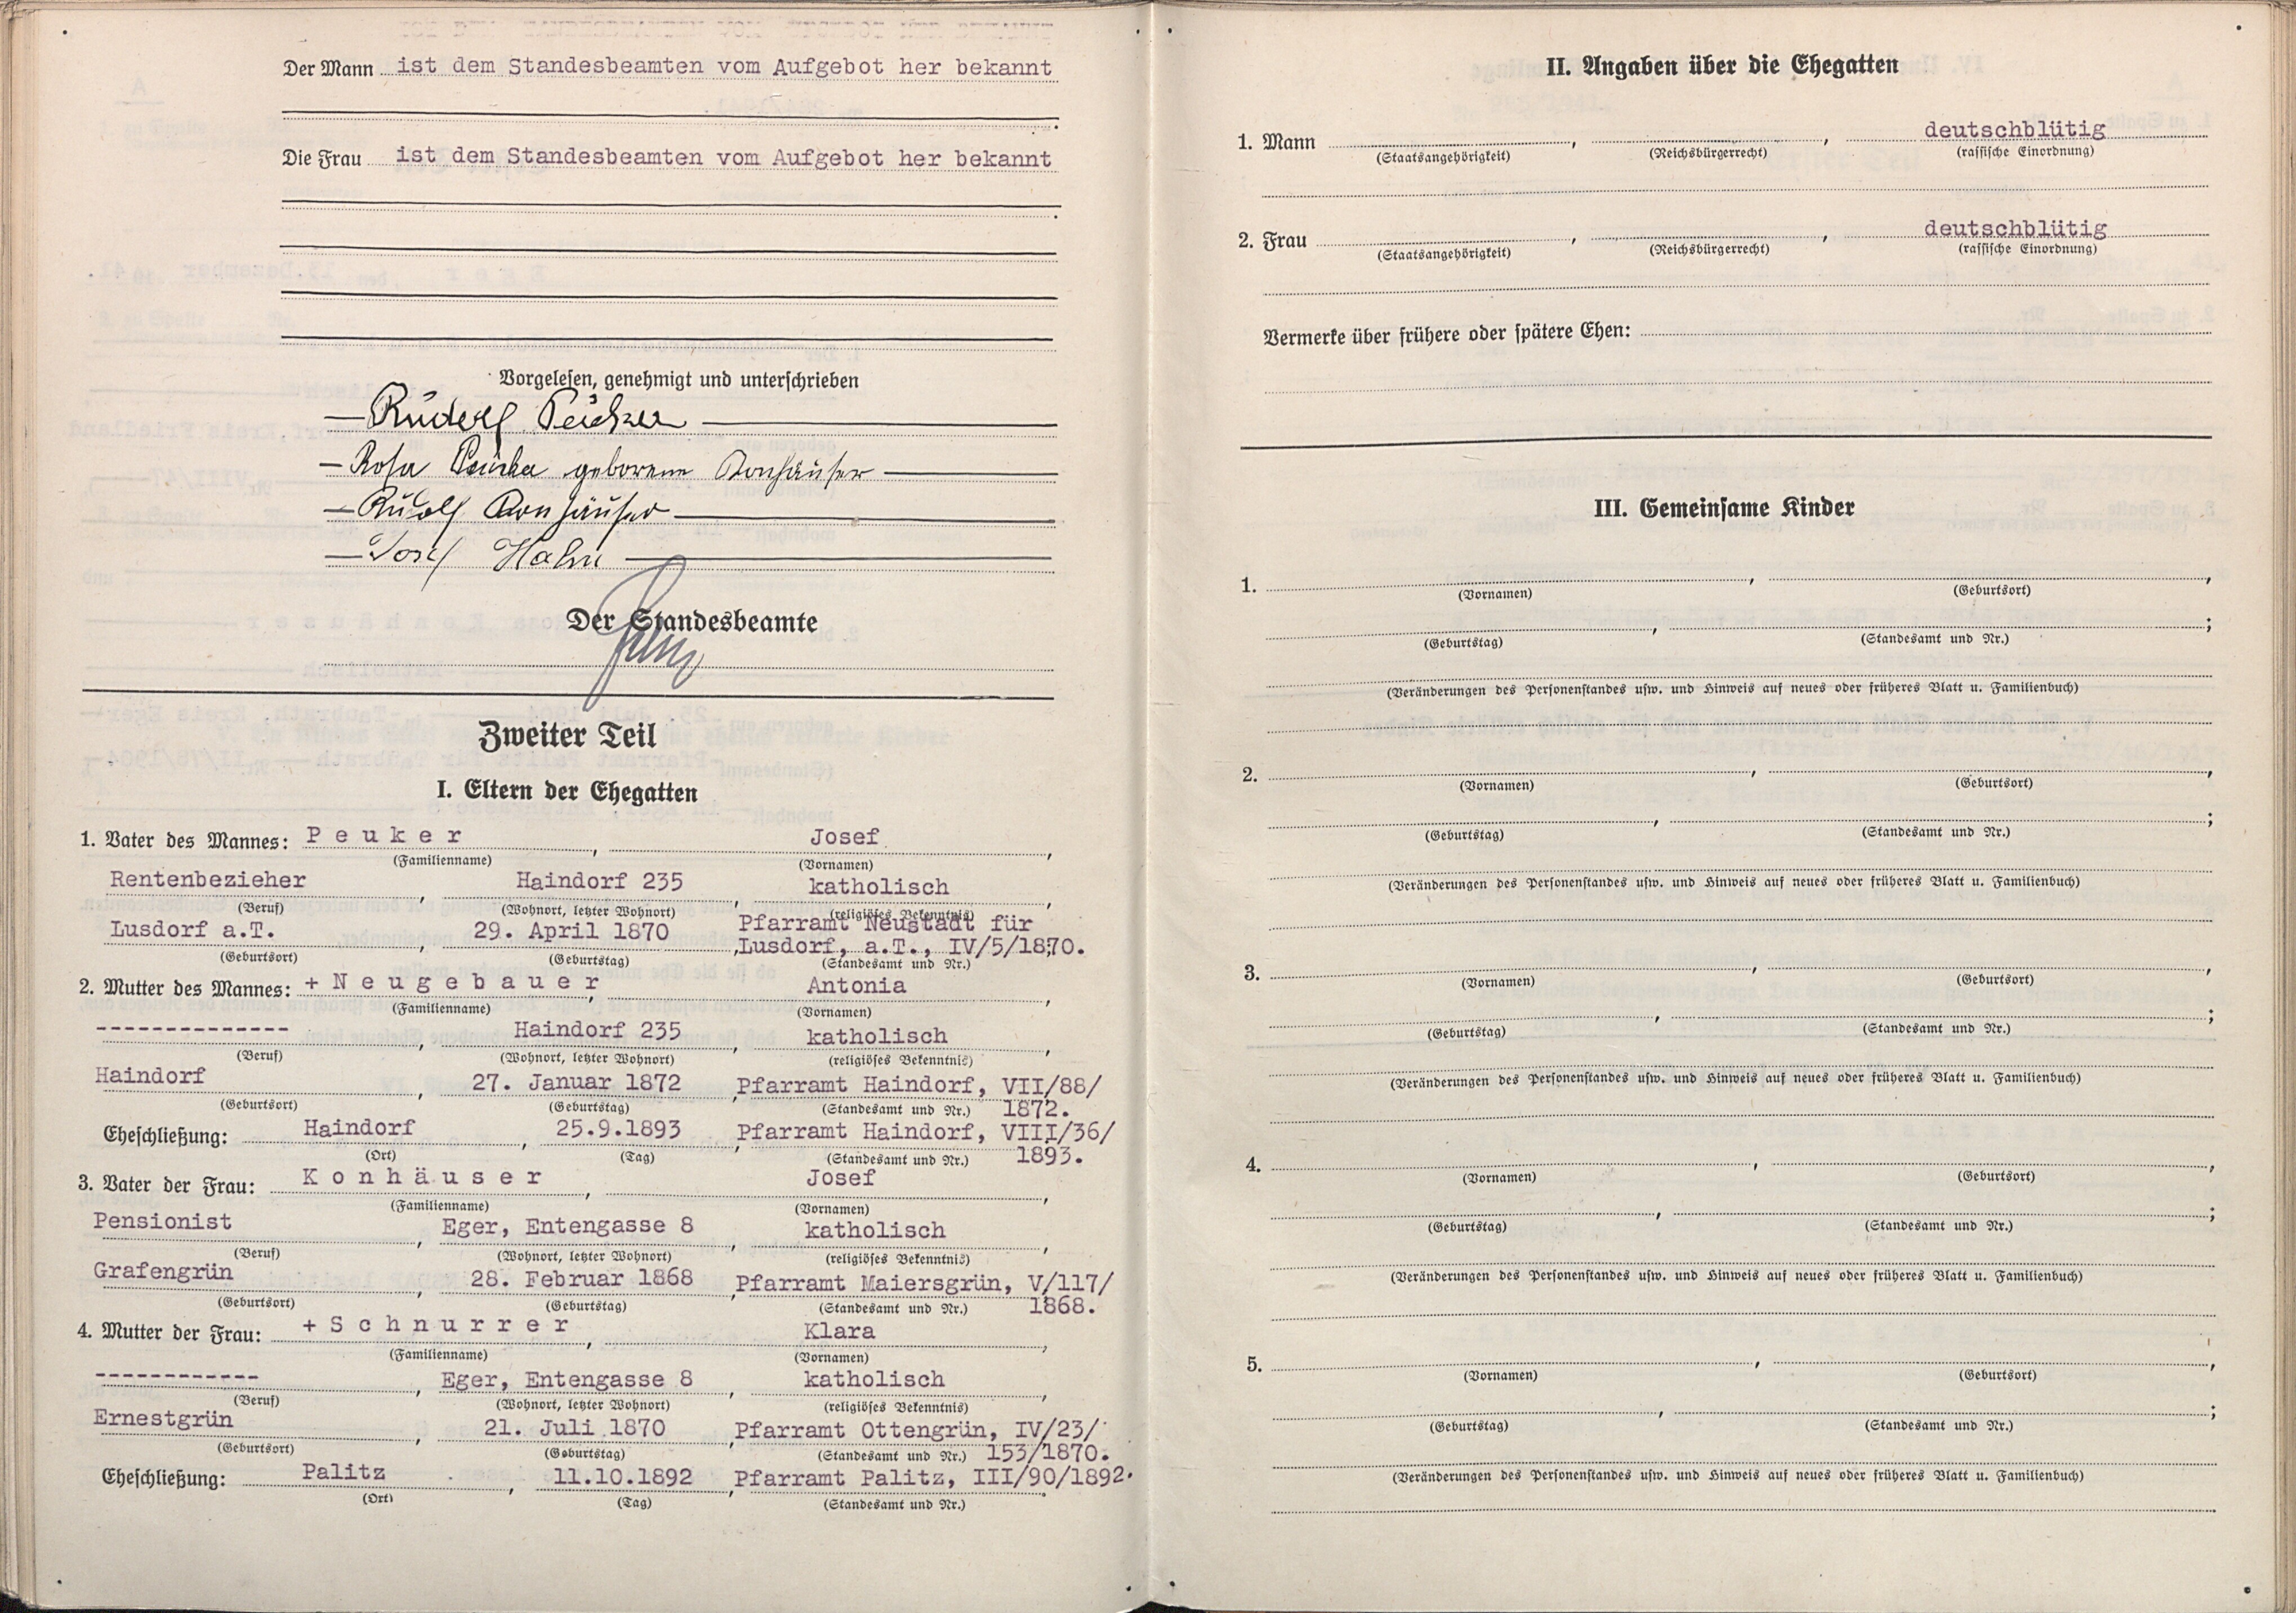 Der Mann ist dem Standesbeamten vom Aufgebot her bekannt
Die Frau ist dem Standesbeamten vom Aufgebot her bekannt
Vorgelesen, genehmigt und unterschrieben
Rudolf Peuker
Rosa Peuker geborene Konhäuser
Rudolf Konhäuser
Josef Hahn
Der Standesbeamte
Zweiter Teil
I. Eltern der Ehegatten
1. Vater des Mannes: Peuker, Josef,
(Familienname) (Vornamen)
Rentenbezieher, Haindorf 235, katholisch,
(Beruf) (Wohnort, letzter Wohnort) (religiöses Bekenntnis)
Lusdorf a.T., 29. April 1870, Pfarramt Neustadt für
Lusdorf, a.T., IV/5/1870.
(Geburtsort) (Geburtstag) (Standesamt und Nr.)
2. Mutter des Mannes: + Neugebauer, Antonia,
(Familienname) (Vornamen)
--------------, Haindorf 235, katholisch,
(Beruf) (Wohnort, letzter Wohnort) (religiöses Bekenntnis)
Haindorf, 27. Januar 1872, Pfarramt Haindorf, VII/88/
(Geburtsort) (Geburtstag) (Standesamt und Nr.) 1872.
Eheschließung: Haindorf, 25.9.1893, Pfarramt Haindorf, VIII/36/
(Ort) (Tag) (Standesamt und Nr.) 1893.
3. Vater der Frau: Konhäuser, Josef,
(Familienname) (Vornamen)
Pensionist, Eger, Entengasse 8, katholisch,
(Beruf) (Wohnort, letzter Wohnort) (religiöses Bekenntnis)
Grafengrün, 28. Februar 1868, Pfarramt Maiersgrün, V/117/
(Geburtsort) (Geburtstag) (Standesamt und Nr.) 1868.
4. Mutter der Frau: + Schnurrer, Klara,
(Familienname) (Vornamen)
------------, Eger, Entengasse 8, katholisch,
(Beruf) (Wohnort, letzter Wohnort) (religiöses Bekenntnis)
Ernestgrün, 21. Juli 1870, Pfarramt Ottengrün, IV/23/
(Geburtsort) (Geburtstag) (Standesamt und Nr.) 153/1870.
Eheschließung: Palitz, 11.10.1892, Pfarramt Palitz, III/90/1892.
(Ort) (Tag) (Standesamt und Nr.)
II. Angaben über die Ehegatten
1. Mann , , deutschblütig
(Staatsangehörigkeit) (Reichsbürgerrecht) (rassische Einordnung)
2. Frau , , deutschblütig
(Staatsangehörigkeit) (Reichsbürgerrecht) (rassische Einordnung)
Vermerke über frühere oder spätere Ehen:
III. Gemeinsame Kinder
1. , ,
(Vornamen) (Geburtsort)
, ;
(Geburtstag) (Standesamt und Nr.)
(Veränderungen des Personenstandes usw. und Hinweis auf neues oder früheres Blatt u. Familienbuch)
2. , ,
(Vornamen) (Geburtsort)
, ;
(Geburtstag) (Standesamt und Nr.)
(Veränderungen des Personenstandes usw. und Hinweis auf neues oder früheres Blatt u. Familienbuch)
3. , ,
(Vornamen) (Geburtsort)
, ;
(Geburtstag) (Standesamt und Nr.)
(Veränderungen des Personenstandes usw. und Hinweis auf neues oder früheres Blatt u. Familienbuch)
4. , ,
(Vornamen) (Geburtsort)
, ;
(Geburtstag) (Standesamt und Nr.)
(Veränderungen des Personenstandes usw. und Hinweis auf neues oder früheres Blatt u. Familienbuch)
5. , ,
(Vornamen) (Geburtsort)
, ;
(Geburtstag) (Standesamt und Nr.)
(Veränderungen des Personenstandes usw. und Hinweis auf neues oder früheres Blatt u. Familienbuch)